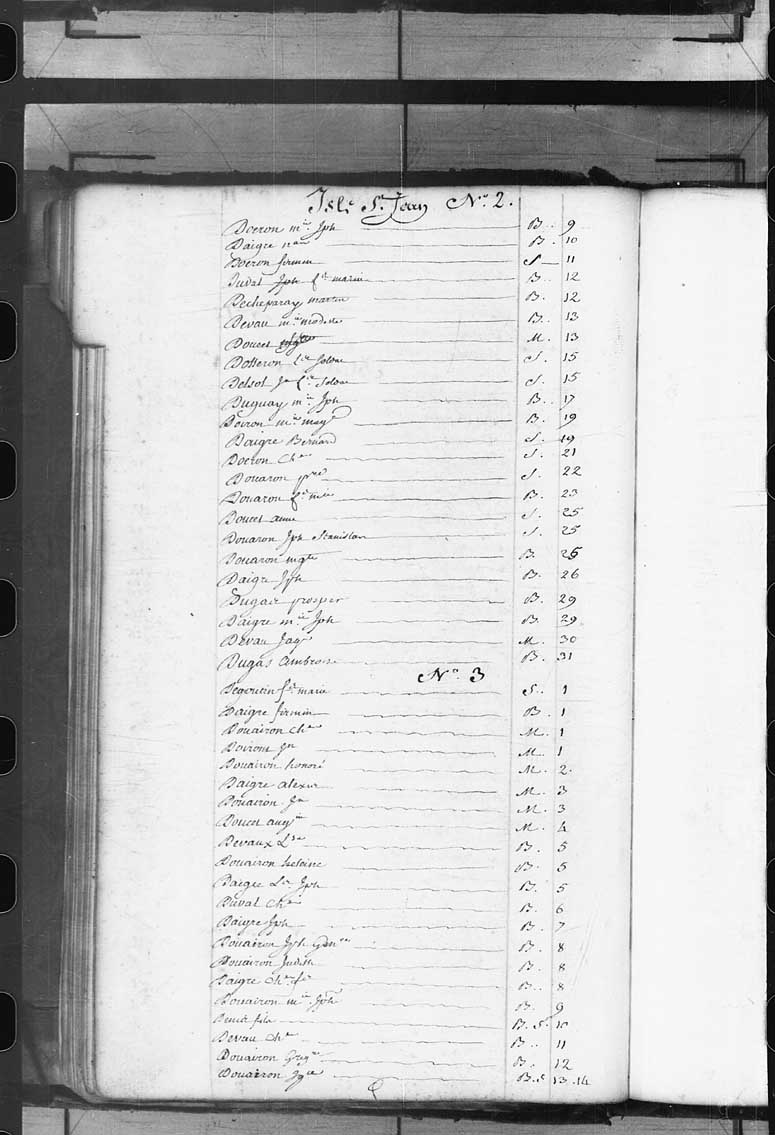 Isle St. Jean No. 2.
Doeron mie. Jph B. 9
Daigre B. 10
Doeron firmin S 11
Duval Jph fs. marin B. 12
Decheparay martin B. 12
Devau me. modeste B. 13
Doucet M. 13
Dotteron S. 15
Delsol S. 15
Duguay mie. Jph B. 17
Doiron mie. B. 19
Daigre Bernard S. 19
Doeron Che S. 21
Douaron pre S. 22
Douaron B. 23
Doucet anne S. 25
Douaron Jph Stanislas S. 25
Douaron mgte B. 25
Daigre Jph B. 26
Dugas prosper B. 29
Daigre mie. Jph B. 29
Devau Jaqe M. 30
Dugas Ambroise B. 31
No. 3
Degoutin fse. marie S. 1
Daigre firmin B. 1
Douairon Che M. 1
Doiront Jn M. 1
Douairon honoré M. 2.
Daigre alexis M. 3
Douairon Jn M. 3
Doucet augin M. 4
Devaux Lse B. 5
Douairon heleine B. 5
Daigre Ls. Jph B. 5
Duval Che B. 6
Daigre Jph B. 7
Douairon Jph B. 8
Douairon Judith B. 8
Daigre Che. B. 8
Douairon mie. Jph B. 9
B. S. 10
Devau Che B. 11
Douairon Gregre B. 12
Douairon B. S 13. 14